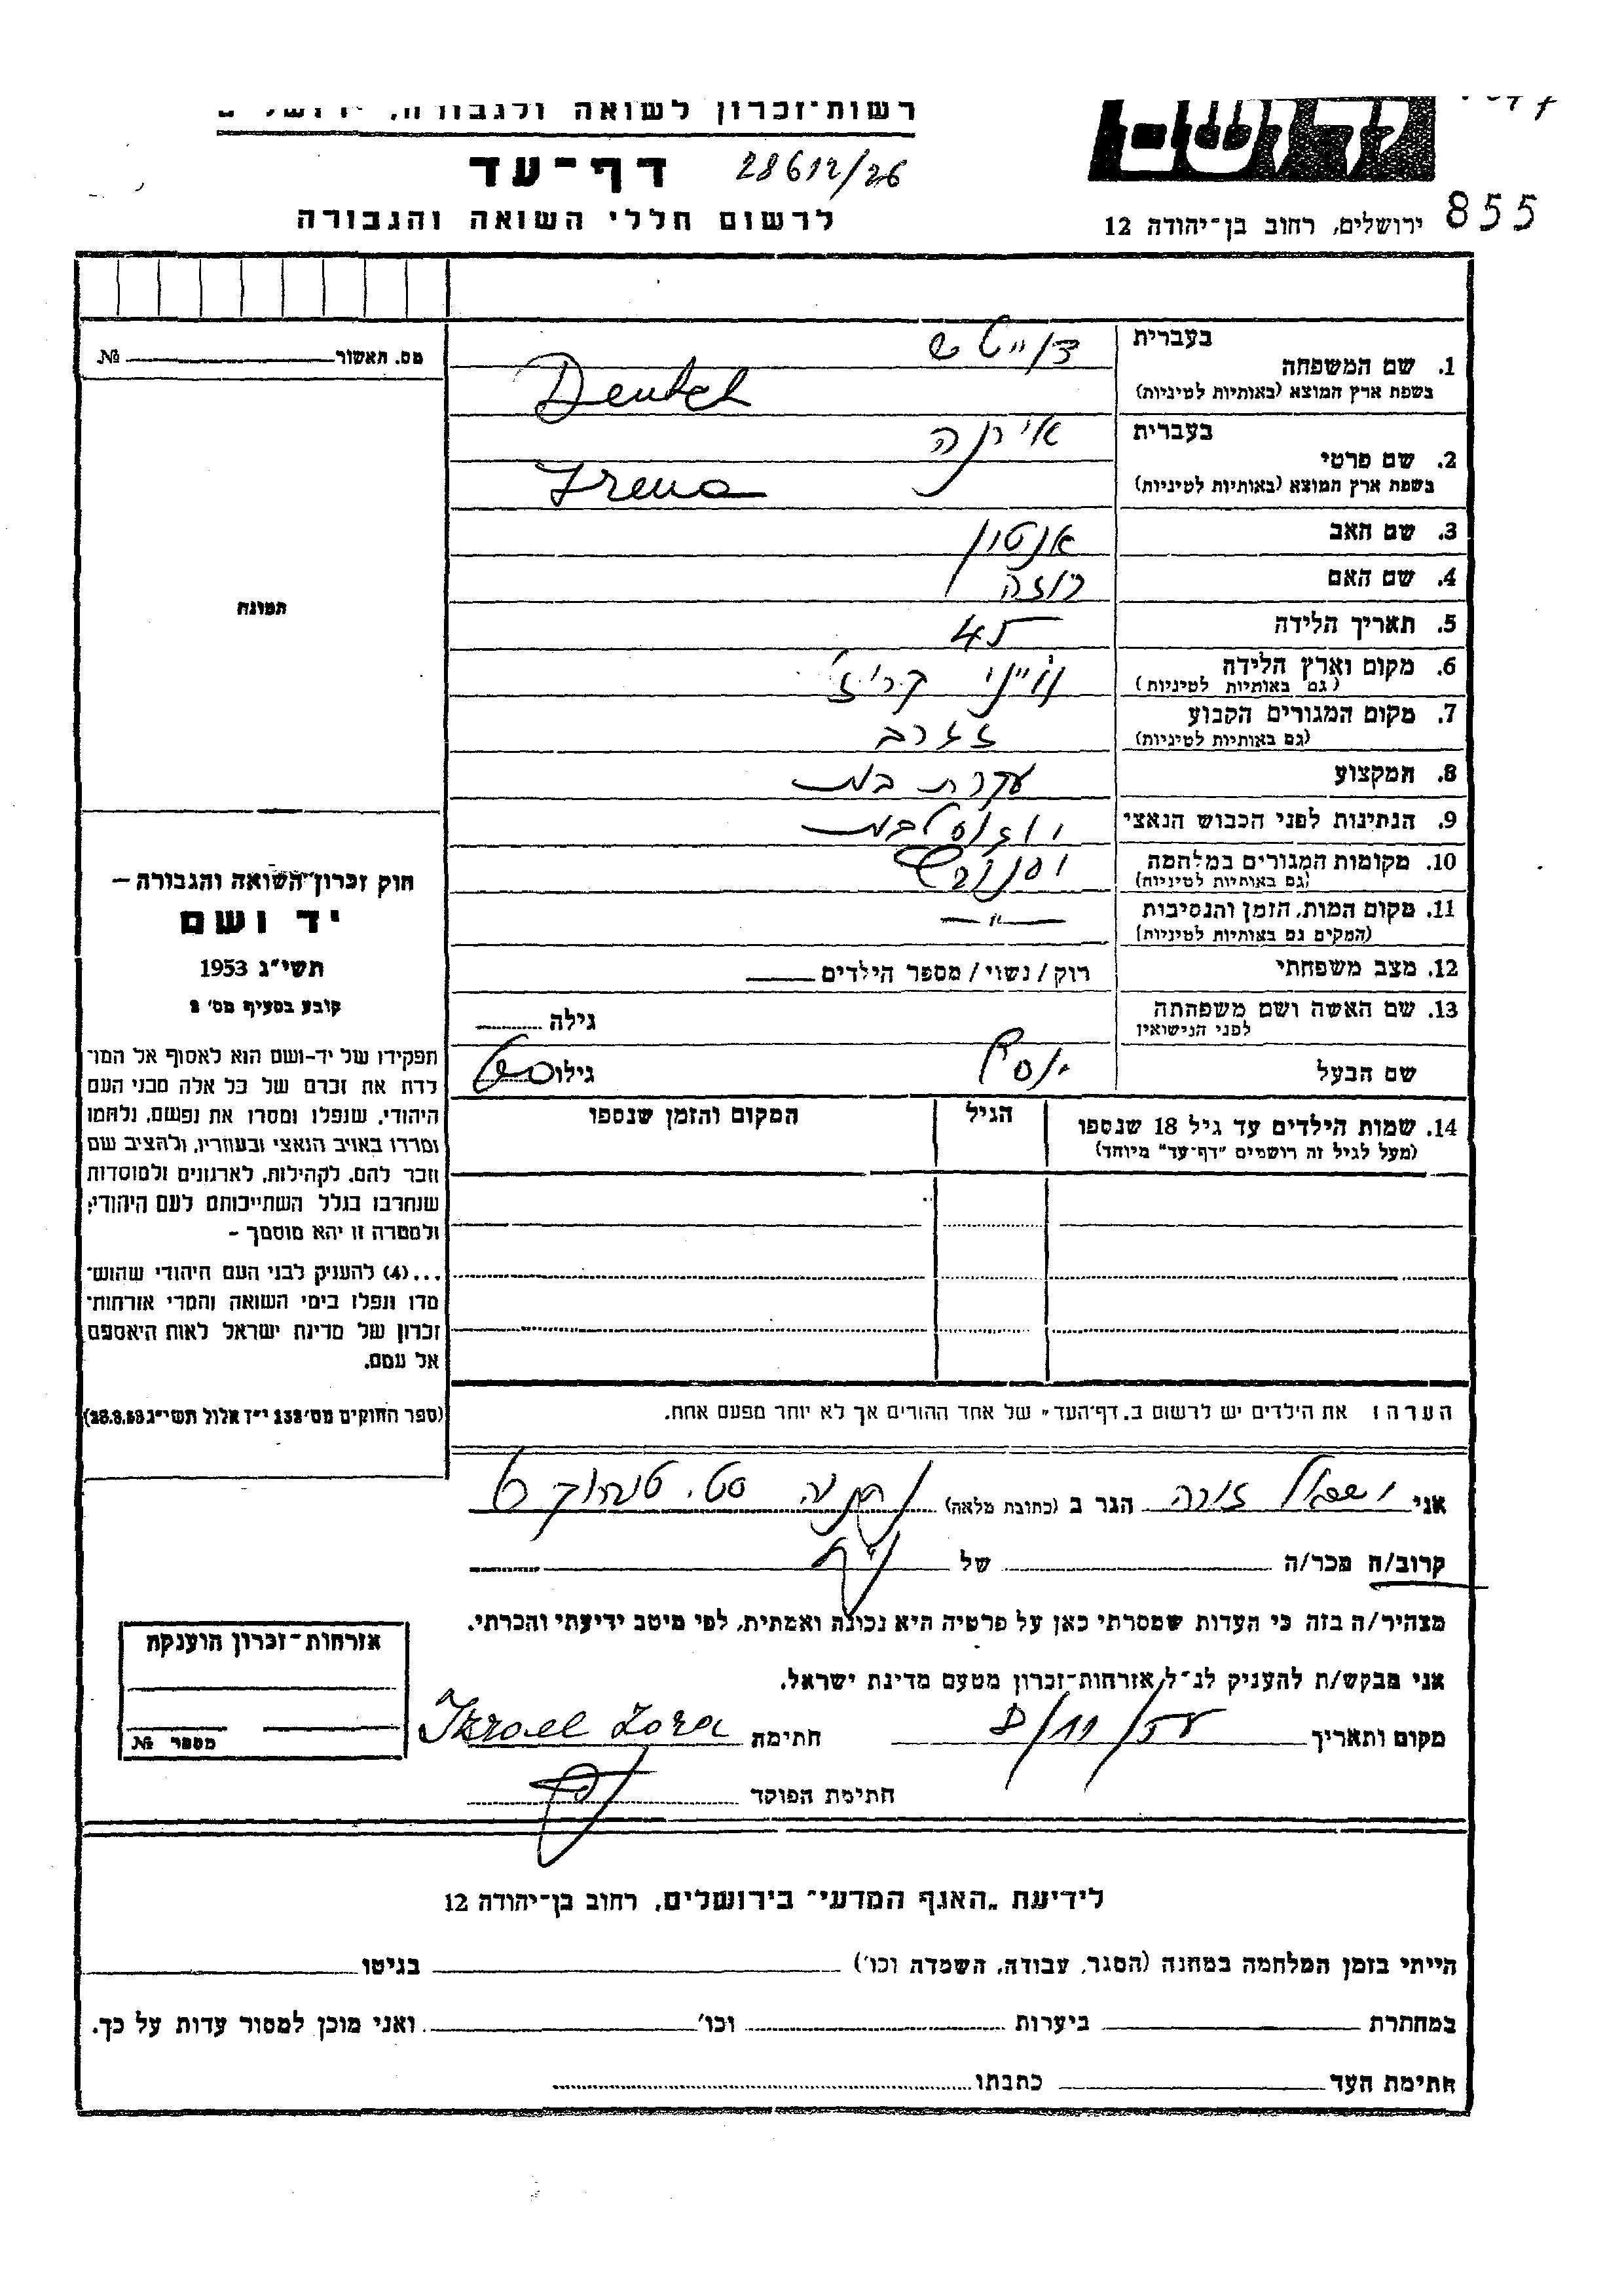 רשות־זכרון לשואה ולגבורה, ירושלים
דף־עד
28612/26
לרשום חללי השואה והגבורה
ירושלים, רחוב בן־יהודה 12
855
מס. תאשור №
תמונה
1. שם המשפחה
בעברית
דויטש
בשפת ארץ המוצא (באותיות לטיניות)
Deutsch
2. שם פרטי
בעברית
אירנה
בשפת ארץ המוצא (באותיות לטיניות)
Irena
3. שם האב
אנטון
4. שם האם
רוזה
5. תאריך הלידה
45
6. מקום וארץ הלידה
(גם באותיות לטיניות)
7. מקום המגורים הקבוע
(גם באותיות לטיניות)
זגרב
8. המקצוע
עקרת בית
9. הנתינות לפני הכבוש הנאצי
יוגוסלבית
10. מקומות המגורים במלחמה
(גם באותיות לטיניות)
11. מקום המות, הזמן והנסיבות
(המקום גם באותיות לטיניות)
—"—
12. מצב משפחתי
רוק / נשוי / מספר הילדים
13. שם האשה ושם משפחתה
לפני הנישואין
גילה
שם הבעל
יוסף
גילו
14. שמות הילדים עד גיל 18 שנספו
(מעל לגיל זה רושמים "דף־עד" מיוחד)
הגיל
המקום והזמן שנספו
הערה: את הילדים יש לרשום ב„דף־העד" של אחד ההורים אך לא יותר מפעם אחת.
חוק זכרון השואה והגבורה —
יד ושם
תשי"ג 1953
קובע בסעיף מס' 2
תפקידו של יד־ושם הוא לאסוף אל המו־
לדת את זכרם של כל אלה מבני העם
היהודי, שנפלו ומסרו את נפשם, נלחמו
ומרדו באויב הנאצי ובעוזריו, ולהציב שם
וזכר להם, לקהילות, לארגונים ולמוסדות
שנחרבו בגלל השתייכותם לעם היהודי;
ולמטרה זו יהא מוסמך –
...(4) להעניק לבני העם היהודי שהוש־
מדו ונפלו בימי השואה והמרי אזרחות־
זכרון של מדינת ישראל לאות היאספם
אל עמם.
(ספר החוקים מס' 132 י"ז אלול תשי"ג 28.8.53)
אני ישראל זורה הגר ב (כתובת מלאה)
קרוב/ה מכר/ה של
מצהיר/ה בזה כי העדות שמסרתי כאן על פרטיה היא נכונה ואמתית, לפי מיטב ידיעתי והכרתי.
אני מבקש/ת להעניק לנ"ל אזרחות־זכרון מטעם מדינת ישראל.
מקום ותאריך חתימה Izrael Zora
חתימת הפוקד
אזרחות־זכרון הוענקה
מספר №
לידיעת „האגף המדעי" בירושלים, רחוב בן־יהודה 12
הייתי בזמן המלחמה במחנה (הסגר, עבודה, השמדה וכו') בגיטו
במחתרת ביערות וכו' ואני מוכן למסור עדות על כך.
חתימת העד כתבתו